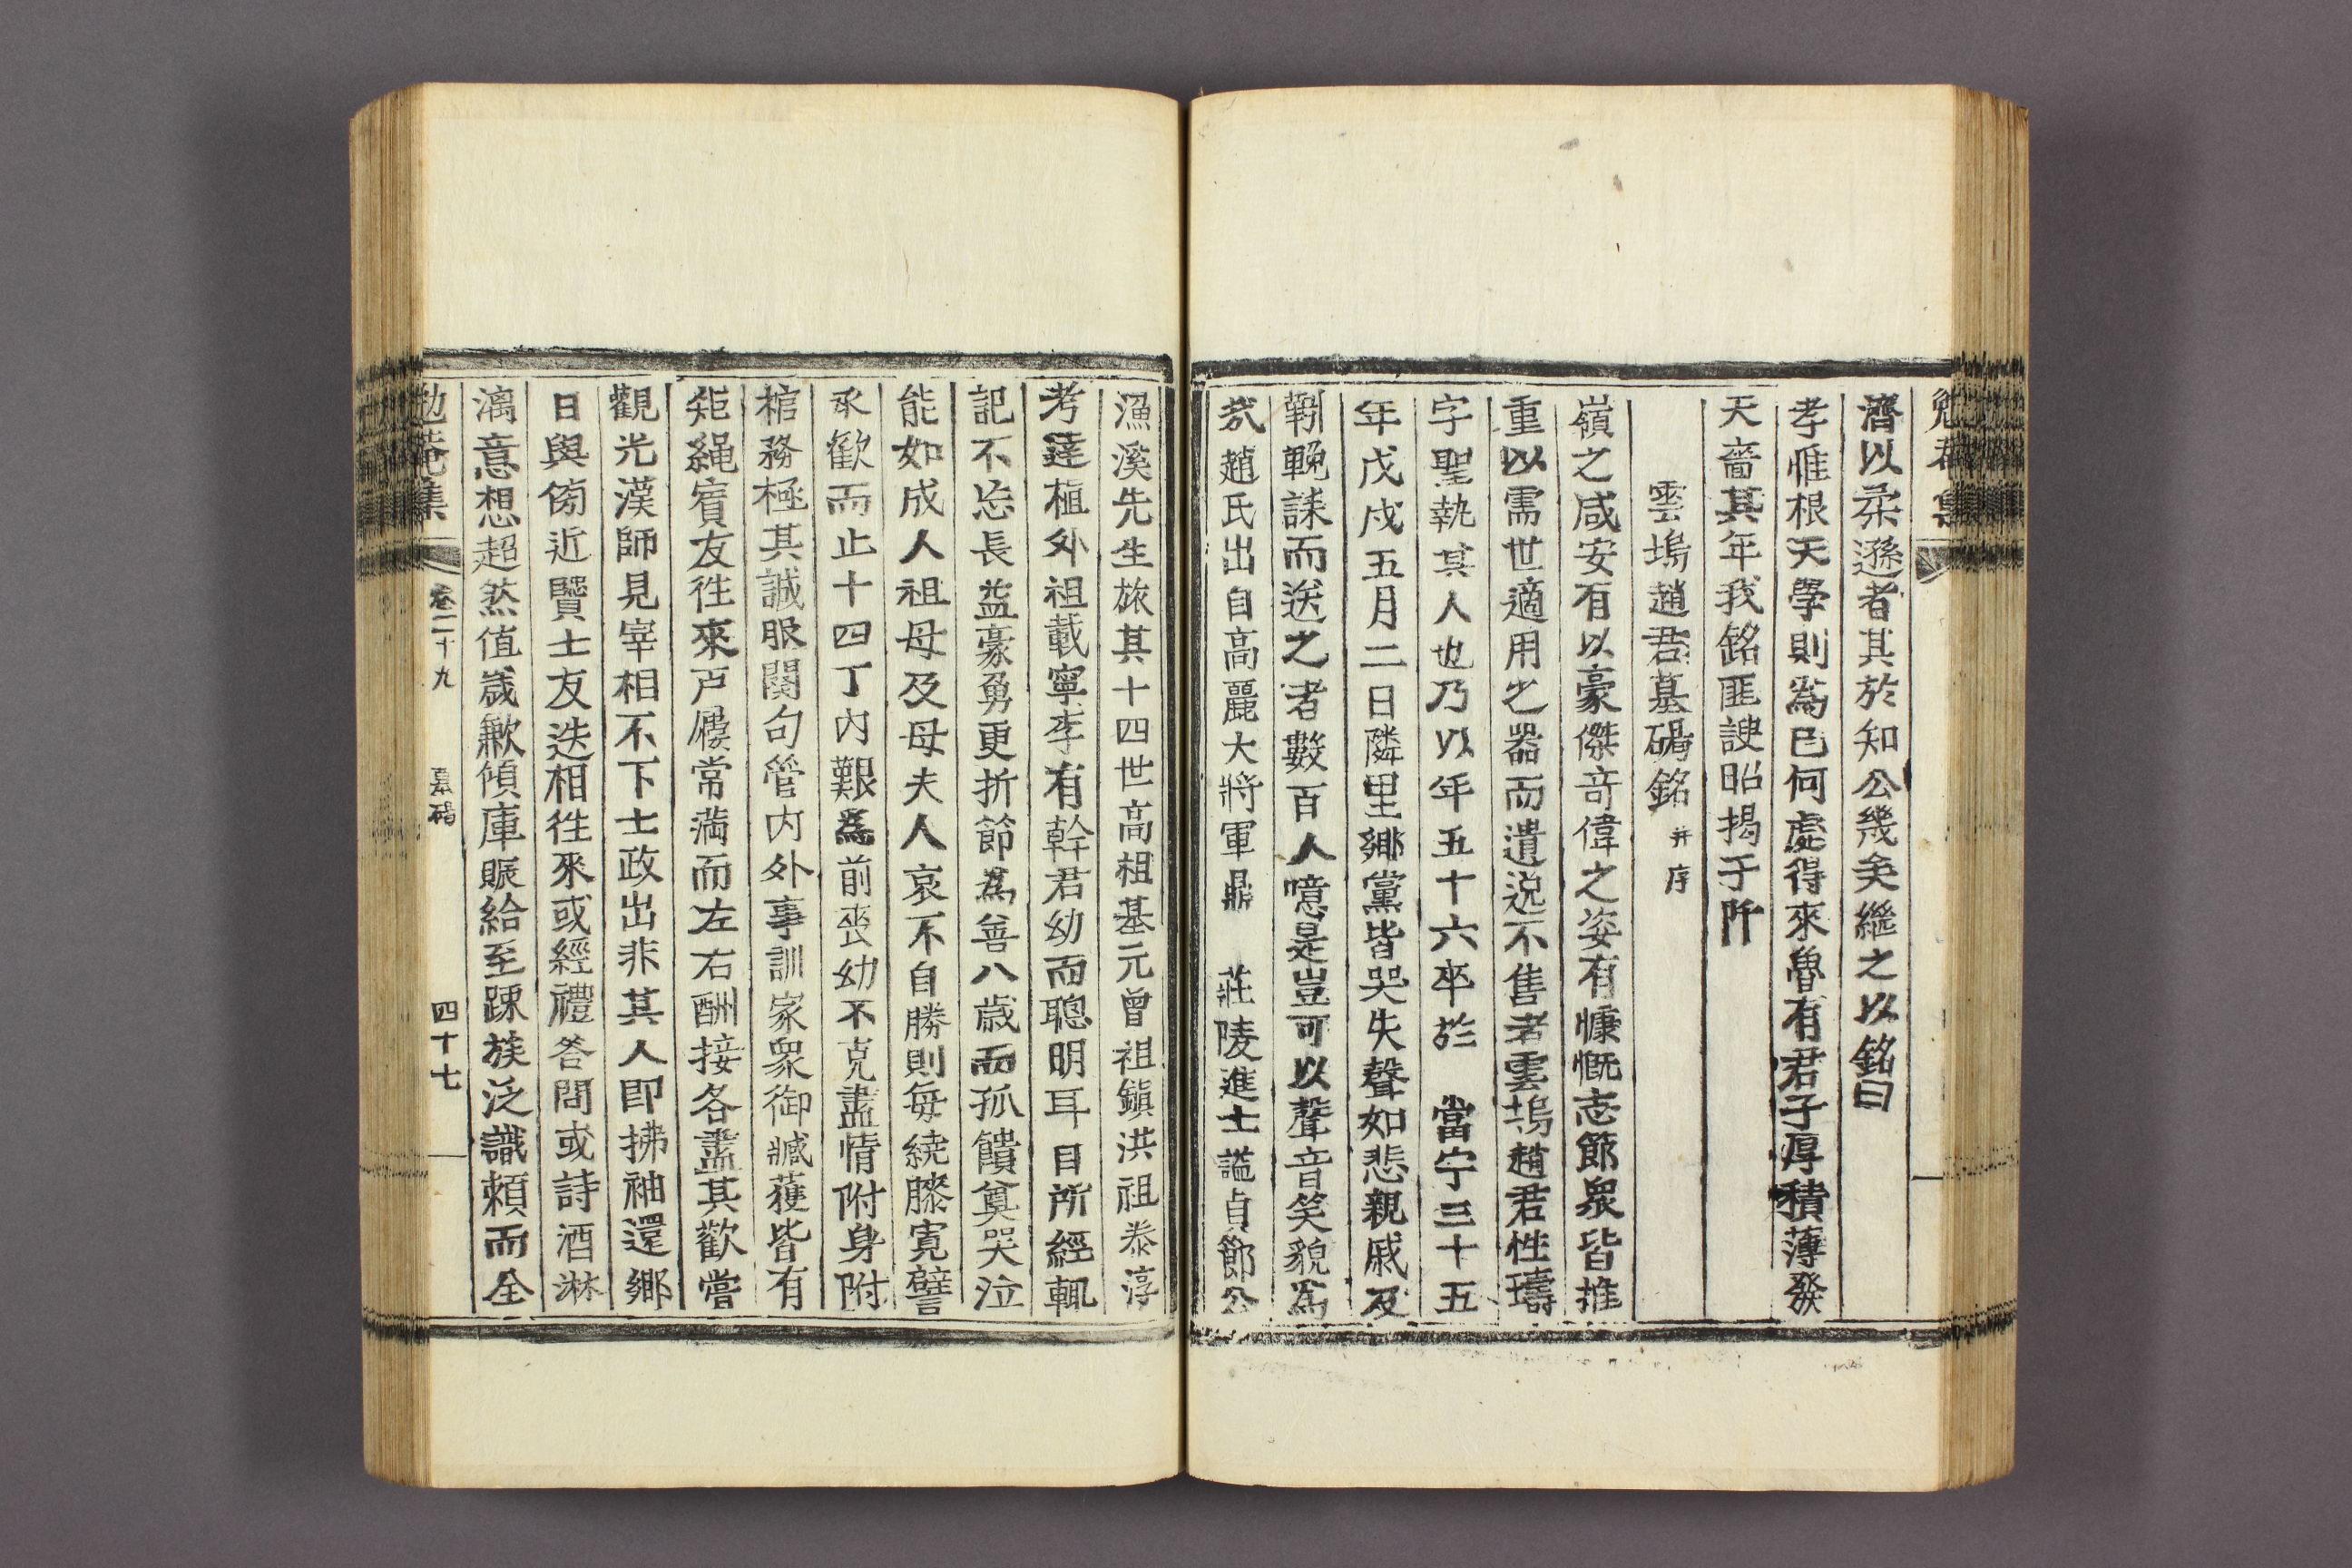 勉菴集
濟以柔遜者其於知公幾矣繼之以銘曰
孝惟根天學則爲己何處得來魯有君子厚積薄發
天嗇其年我銘匪諛昭揭于阡
雲塢趙君墓碣銘 并序
嶺之咸安有以豪傑奇偉之姿有慷慨志節衆皆推
重以需世適用之器而遺逸不售者雲塢趙君性璹
字聖執其人也乃以年五十六卒於 當宁三十五
年戊戌五月二日隣里鄉黨皆哭失聲如悲親戚及
斸輓誄而送之者數百人噫是豈可以聲音笑貌爲
㢤趙氏出自高麗大將軍鼎 莊陵進士謚貞節公
漁溪先生旅其十四世高祖基元曾祖鎭洪祖泰淳
考蓮植外祖載寧李有幹君幼而聰明耳目所經輒
記不忘長益豪勇更折節爲善八歲而孤饋奠哭泣
能如成人祖母及母夫人哀不自勝則每繞膝寬譬
承歡而止十四丁內艱爲前喪幼不克盡情附身附
棺務極其誠服闋句管內外事訓家衆御臧獲皆有
矩繩賓友徃來戶屨常滿而左右酬接各盡其歡嘗
觀光漢師見宰相不下士政出非其人卽拂袖還鄉
日與傍近賢士友迭相徃來或經禮答問或詩酒淋
漓意想超然値歲歉傾庫賑給至踈族泛識賴而全
勉菴集 卷二十九 墓碣 四十七